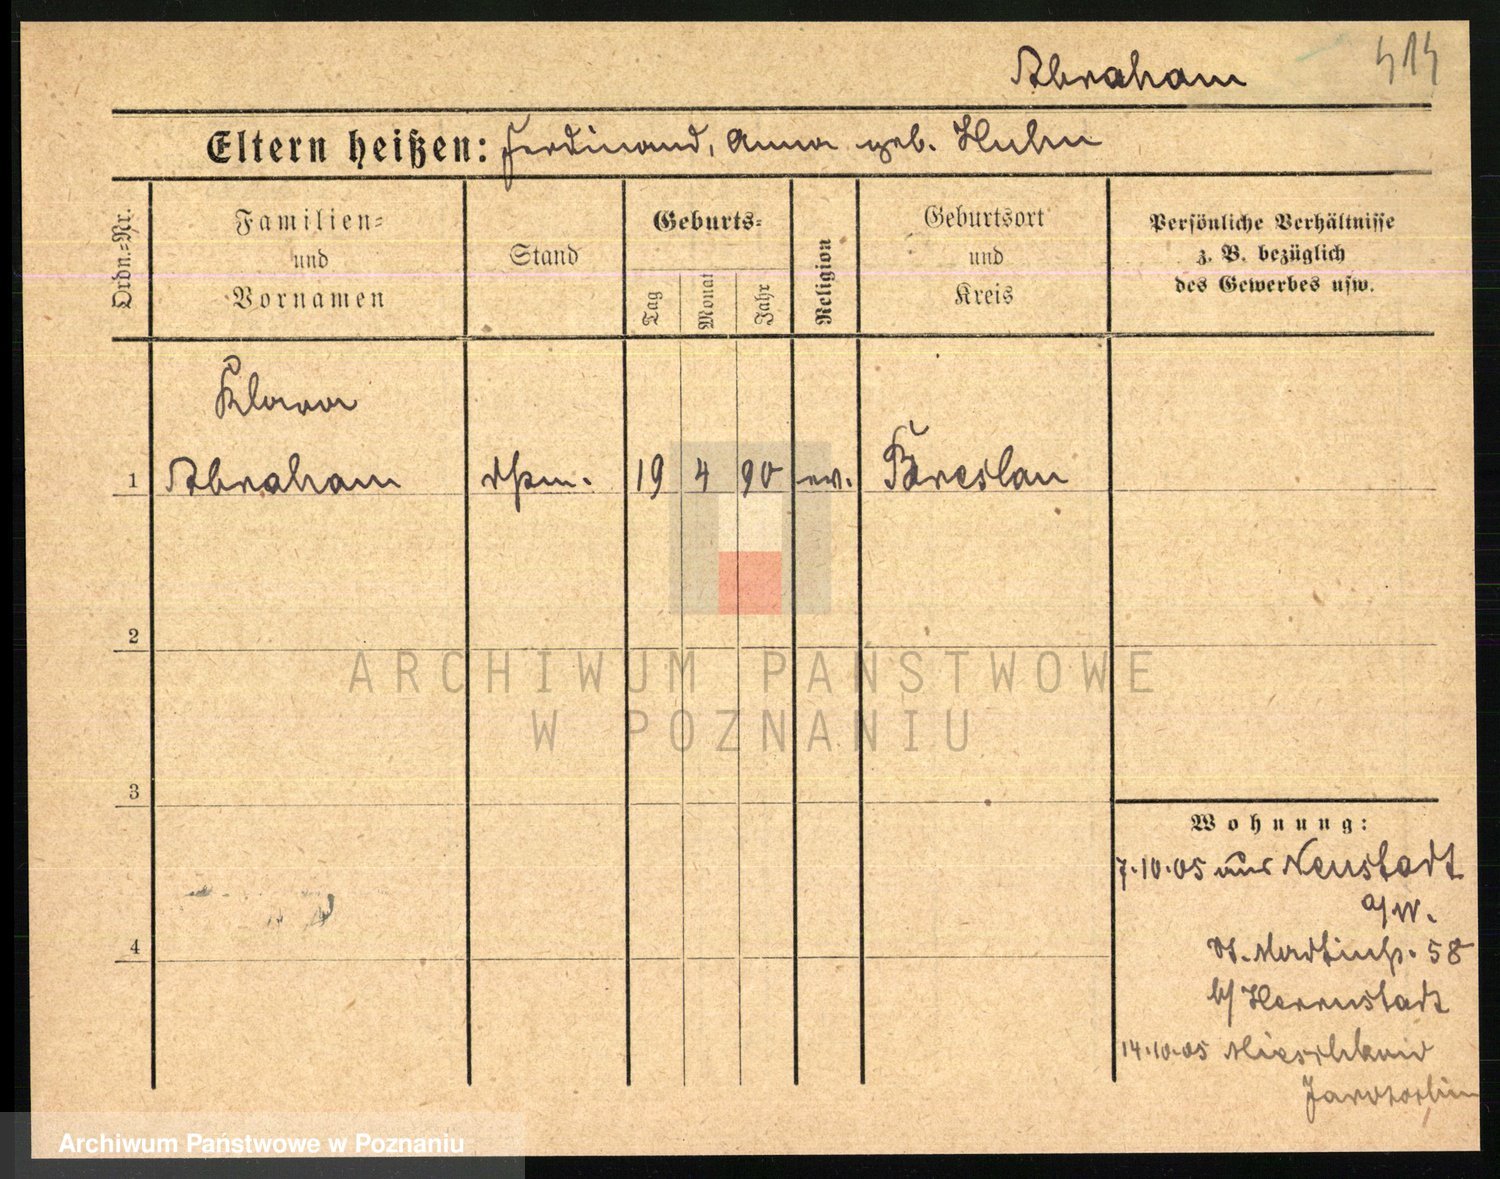 Abraham 414
Eltern heißen: Ferdinand, Anna geb. Huhn
Ordn.-Nr.
Familien-
und
Vornamen
Stand
Geburts-
Tag
Monat
Jahr
Religion
Geburtsort
und
Kreis
Persönliche Verhältnisse
z. B. bezüglich
des Gewerbes usw.
Klara
1 Abraham 19 4 90 ev. Breslau
2
3
4
Wohnung:
7.10.05 aus Neustadt
a/W.
St. Martinstr. 58
b/ Herrnstadt
14.10.05 Mieschkow
Jarotschin
ARCHIWUM PAŃSTWOWE
W POZNANIU
Archiwum Państwowe w Poznaniu